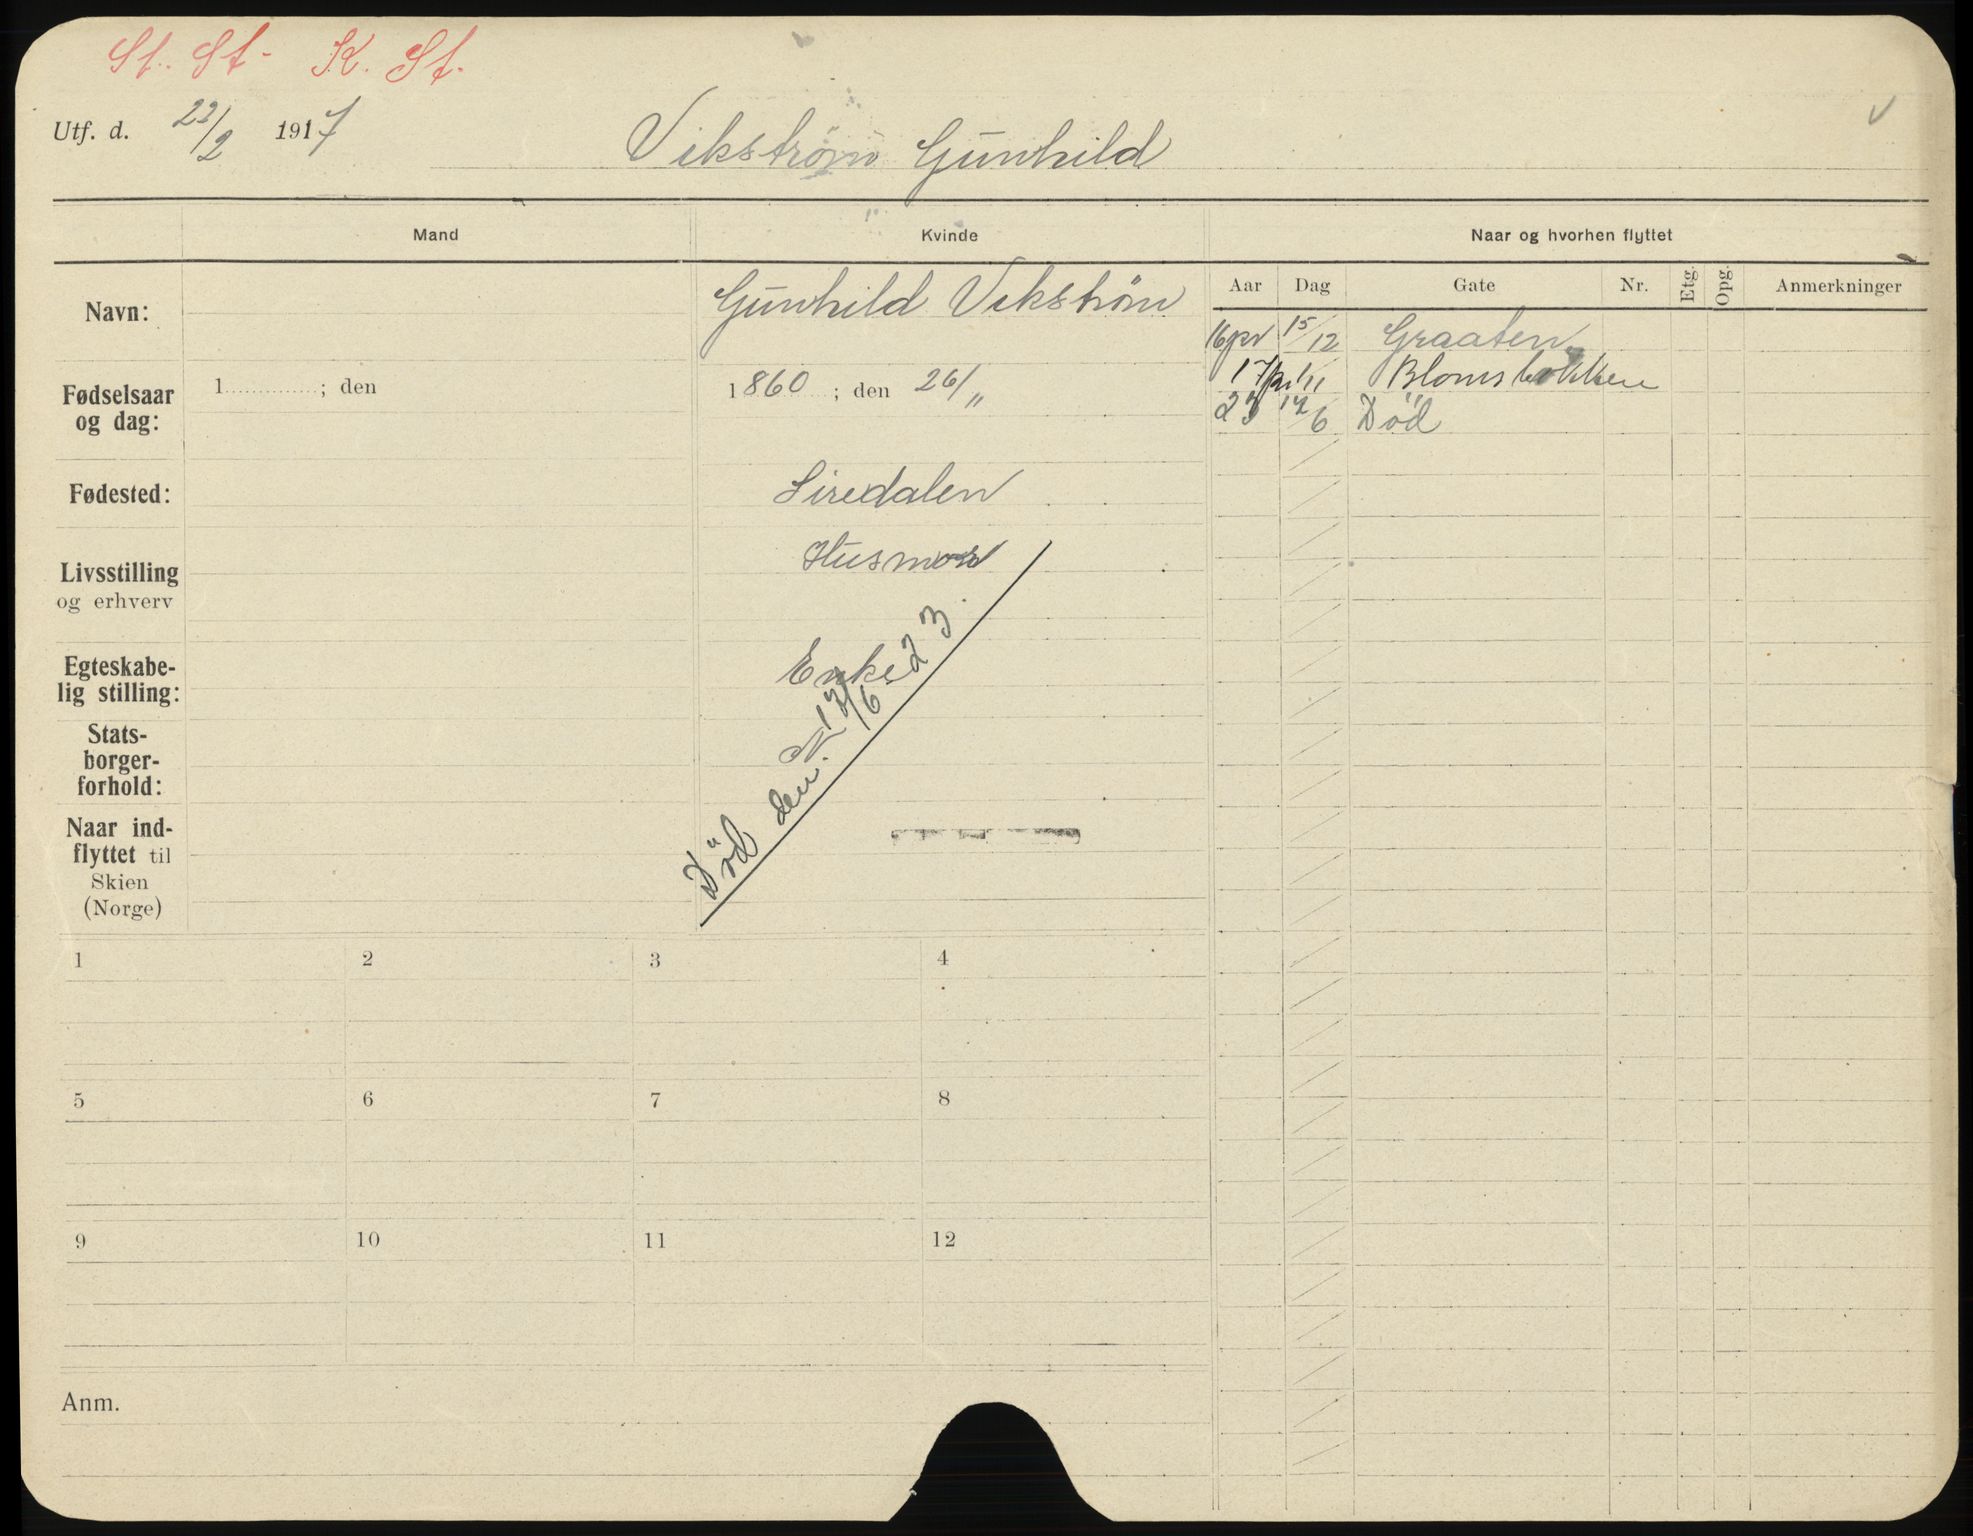 St. St. K. St.
Utf. d. 22/2 1917 Vikström Gunhild
Mand Kvinde Naar og hvorhen flyttet
Aar Dag Gate Nr. Etg. Opg. Anmerkninger
Navn: Gunhild Vikström
16 pr 15/12 Graaten
Fødselsaar og dag: 1 ; den 1860 ; den 26/"
17 pr 1/11 Blomsbakken
23 17/6 Död
Fødested: Siredalen
Livsstilling og erhverv Husmor
Egteskabe-
lig stilling: Enke
Stats-
borger-
forhold: N.
Död den 17/6 23.
Naar ind-
flyttet til
Skien
(Norge)
1 2 3 4
5 6 7 8
9 10 11 12
Anm.